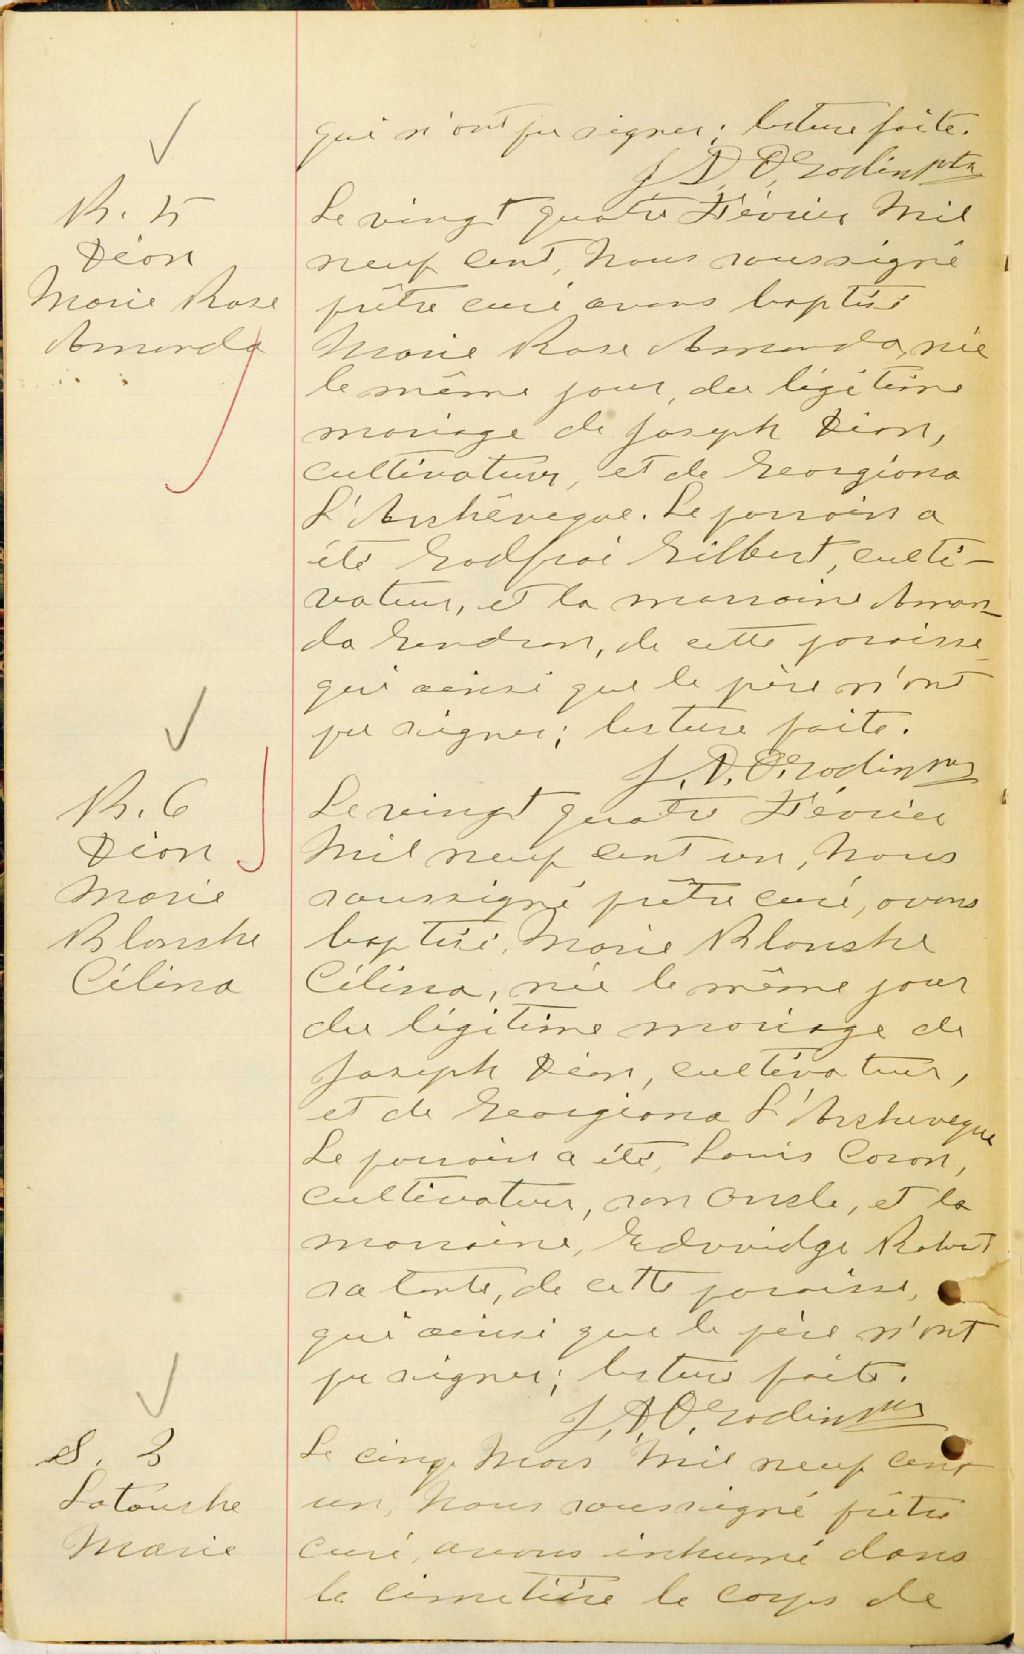 qui n'ont pu signer; lecture faite.
J. A. O. Godin ptre
B. 5
Dion
Marie Rose
Amanda
Le vingt quatre Février Mil
neuf cent, Nous soussigné
prêtre curé avons baptisé
Marie Rose Amanda, née
le même jour, du légitime
mariage de Joseph Dion,
cultivateur, et de Georgiana
L'Archêveque. Le parrain a
été Godfroi Gilbert, culti-
vateur, et la marraine Aman-
da Gendron, de cette paroisse
qui ainsi que le père n'ont
pu signer; lecture faite.
J. A. O. Godin ptre
B. 6
Dion
Marie
Blanche
Célina
Le vingt quatre Février
Mil neuf cent un, Nous
soussigné prêtre curé, avons
baptisé, Marie Blanche
Célina, née le même jour
du légitime mariage de
Joseph Dion, cultivateur,
et de Georgiana L'Archeveque
Le parrain a été, Louis Caron,
cultivateur, son Oncle, et la
marraine, Edwidge Robert
sa tante, de cette paroisse,
qui ainsi que le père n'ont
pu signer; lecture faite.
J. A. O. Godin ptre
S. 3
Latouche
Marie
Le cinq Mars Mil neuf cent
un, Nous soussigné prêtre
curé, avons inhumé dans
le cimetière le corps de